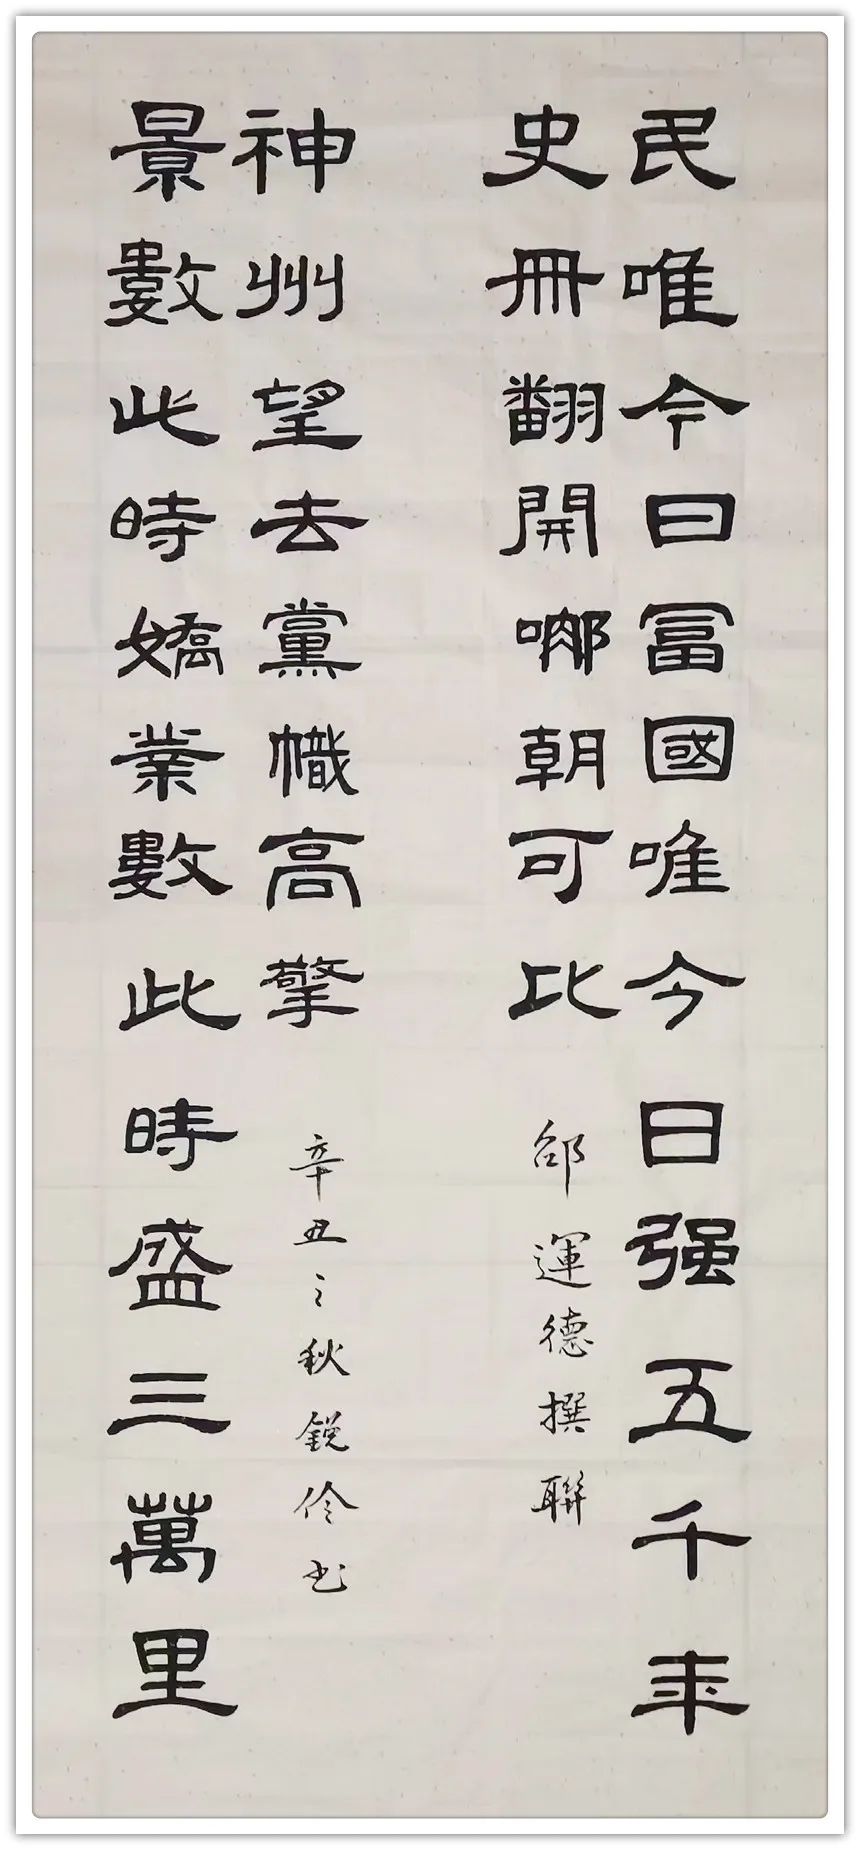 民唯今日冨國唯今日强五千年
史冊翻開哪朝可比
邵運德撰聯
景數此時嬌業數此時盛三萬里
神州望去黨幟高擎
辛丑之秋銳伶书